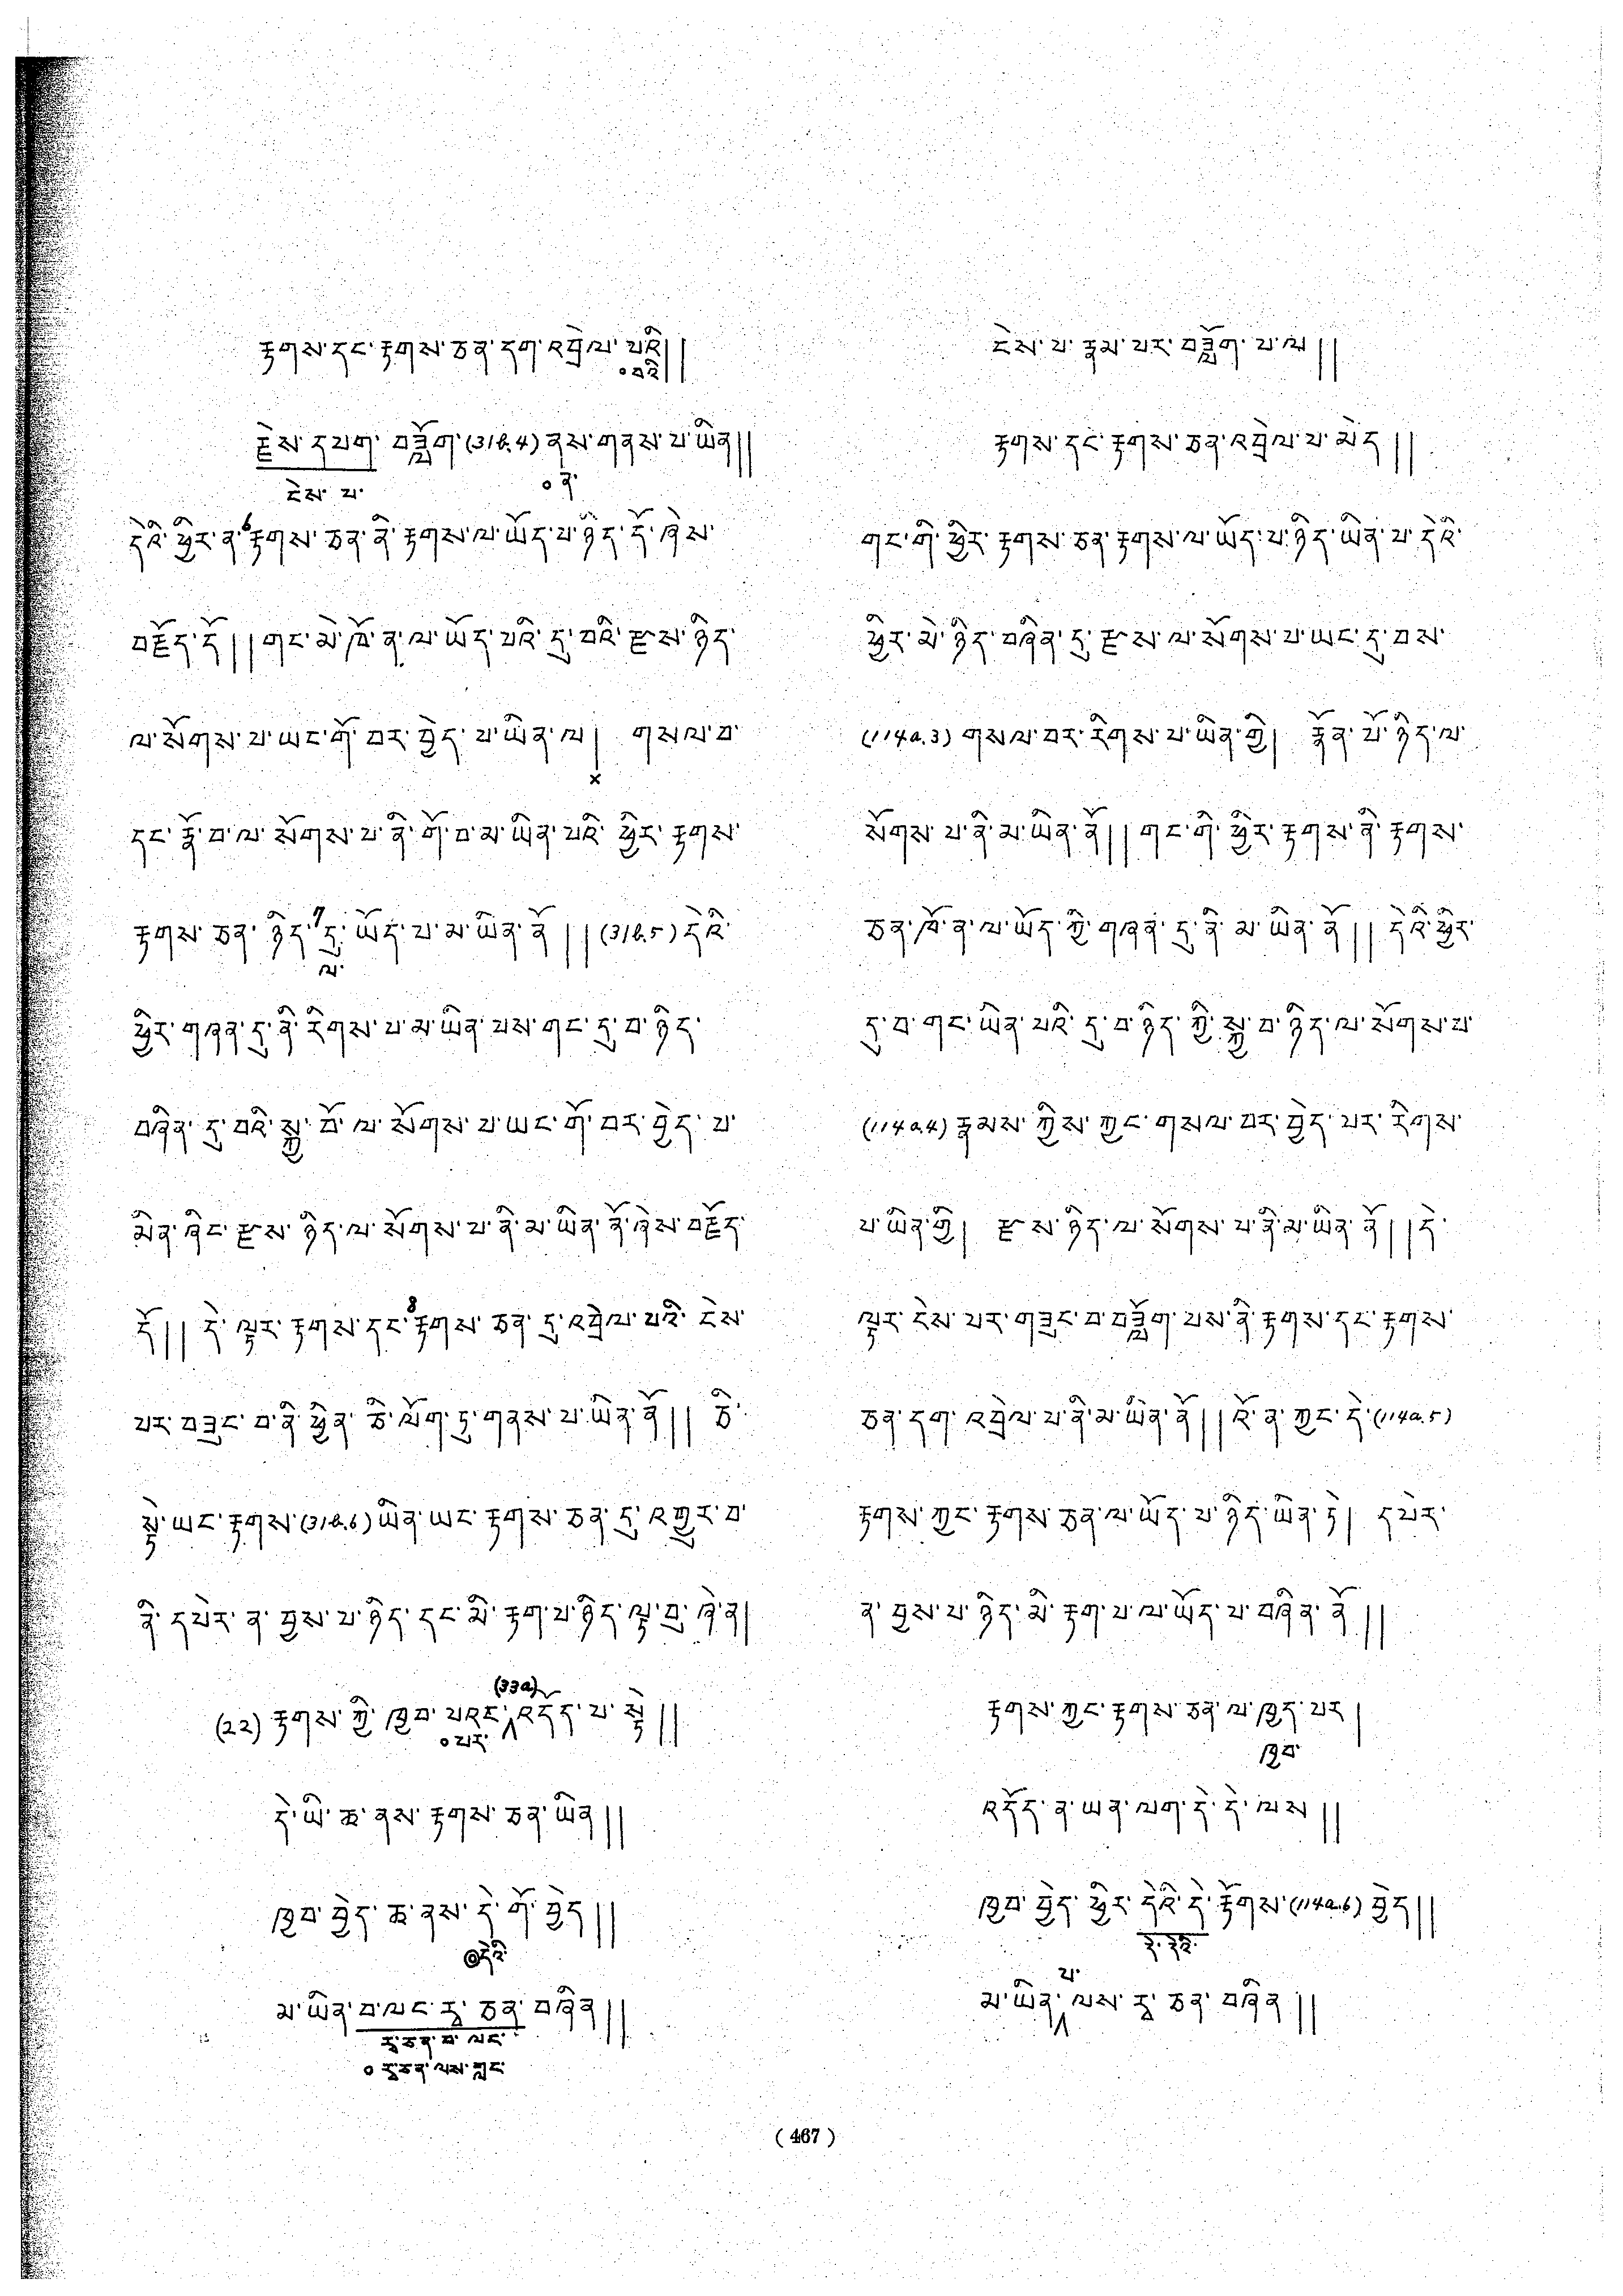 རྟགས་དང་རྟགས་ཅན་དག་འབྲེལ་པའི།།
༠བའི
རྗེས་དཔག་བཟློག་(31b.4)ནས་གནས་པ་ཡིན།།
ངེས་པ་
༠ནི་
དེའི་ཕྱིར་ན་6རྟགས་ཅན་ནི་རྟགས་ལ་ཡོད་པ་ཉིད་དོ་ཞེས་
བརྗོད་དོ།།གང་མེ་ཁོ་ན་ལ་ཡོད་པའི་དུ་བའི་རྫས་ཉིད་
ལ་སོགས་པ་ཡང་གོ་བར་བྱེད་པ་ཡིན་ལ། གསལ་བ་
×
དང་རྣོ་བ་ལ་སོགས་པ་ནི་གོ་བ་མ་ཡིན་པའི་ཕྱིར་རྟགས་
རྟགས་ཅན་ཉིད་7དུ་ཡོད་པ་མ་ཡིན་ནོ།།(31b.5)དེའི་
ལ་
ཕྱིར་གཞན་དུ་ནི་རིགས་པ་མ་ཡིན་པས་གང་དུ་བ་ཉིད་
བཞིན་དུ་བའི་སྐྱ་བོ་ལ་སོགས་པ་ཡང་གོ་བར་བྱེད་པ་
མིན་ཞིང་རྫས་ཉིད་ལ་སོགས་པ་ནི་མ་ཡིན་ནོ་ཞེས་བརྗོད་
དོ།། དེ་ལྟར་རྟགས་དང་8རྟགས་ཅན་དུ་འབྲེལ་པའི་ངེས་
པར་བཟུང་བ་ནི་ཕྱིན་ཅི་ལོག་ཏུ་གནས་པ་ཡིན་ནོ།། ཅི་
སྟེ་ཡང་རྟགས་(31b.6)ཡིན་ཡང་རྟགས་ཅན་དུ་འགྱུར་བ་
ནི་དཔེར་ན་བྱས་པ་ཉིད་དང་མི་རྟག་པ་ཉིད་ལྟ་བུ་ཞེ་ན།
(33a)
(22) རྟགས་ཀྱི་ཁྱབ་པའང་འདོད་པ་སྟེ།།
༠པར་
དེ་ཡི་ཆ་ནས་རྟགས་ཅན་ཡིན།།
ཁྱབ་བྱེད་ཆ་ནས་དེ་གོ་བྱེད།།
◎དེའི་
མ་ཡིན་བ་ལང་རྭ་ཅན་བཞིན།།
རྭ་ཅན་བ་ལང་
༠རྭ་ཅན་ལས་གླང་
ངེས་པ་རྣམ་པར་བཟློག་པ་ལ།།
རྟགས་དང་རྟགས་ཅན་འབྲེལ་པ་མེད།།
གང་གི་ཕྱིར་རྟགས་ཅན་རྟགས་ལ་ཡོད་པ་ཉིད་ཡིན་པ་དེའི་
ཕྱིར་མེ་ཉིད་བཞིན་དུ་རྫས་ལ་སོགས་པ་ཡང་དུ་བས་
(114a.3)གསལ་བར་རིགས་པ་ཡིན་གྱི། རྣོན་པོ་ཉིད་ལ་
སོགས་པ་ནི་མ་ཡིན་ནོ།།གང་གི་ཕྱིར་རྟགས་ནི་རྟགས་
ཅན་ཁོ་ན་ལ་ཡོད་ཀྱི་གཞན་དུ་ནི་མ་ཡིན་ནོ།། དེའི་ཕྱིར་
དུ་བ་གང་ཡིན་པའི་དུ་བ་ཉིད་ཀྱི་སྐྱ་བ་ཉིད་ལ་སོགས་པ་
(114a.4)རྣམས་ཀྱིས་ཀྱང་གསལ་བར་བྱེད་པར་རིགས་
པ་ཡིན་གྱི། རྫས་ཉིད་ལ་སོགས་པ་ནི་མ་ཡིན་ནོ།།དེ་
ལྟར་ངེས་པར་གཟུང་བ་བཟློག་པས་ནི་རྟགས་དང་རྟགས་
ཅན་དག་འབྲེལ་པ་ནི་མ་ཡིན་ནོ།།འོ་ན་ཀྱང་དེ་(114a.5)
རྟགས་ཀྱང་རྟགས་ཅན་ལ་ཡོད་པ་ཉིད་ཡིན་ཏེ། དཔེར་
ན་བྱས་པ་ཉིད་མི་རྟག་པ་ལ་ཡོད་པ་བཞིན་ནོ།།
རྟགས་ཀྱང་རྟགས་ཅན་ལ་ཁྱད་པར།
ཁྱབ་
འདོད་ན་ཡན་ལག་དེ་དེ་ལས།།
ཁྱབ་བྱེད་ཕྱིར་དེའི་དེ་རྟོགས་(114a.6)བྱེད།།
དེ་དེའི་
པ་
མ་ཡིན་ལས་རྭ་ཅན་བཞིན།།
( 467 )